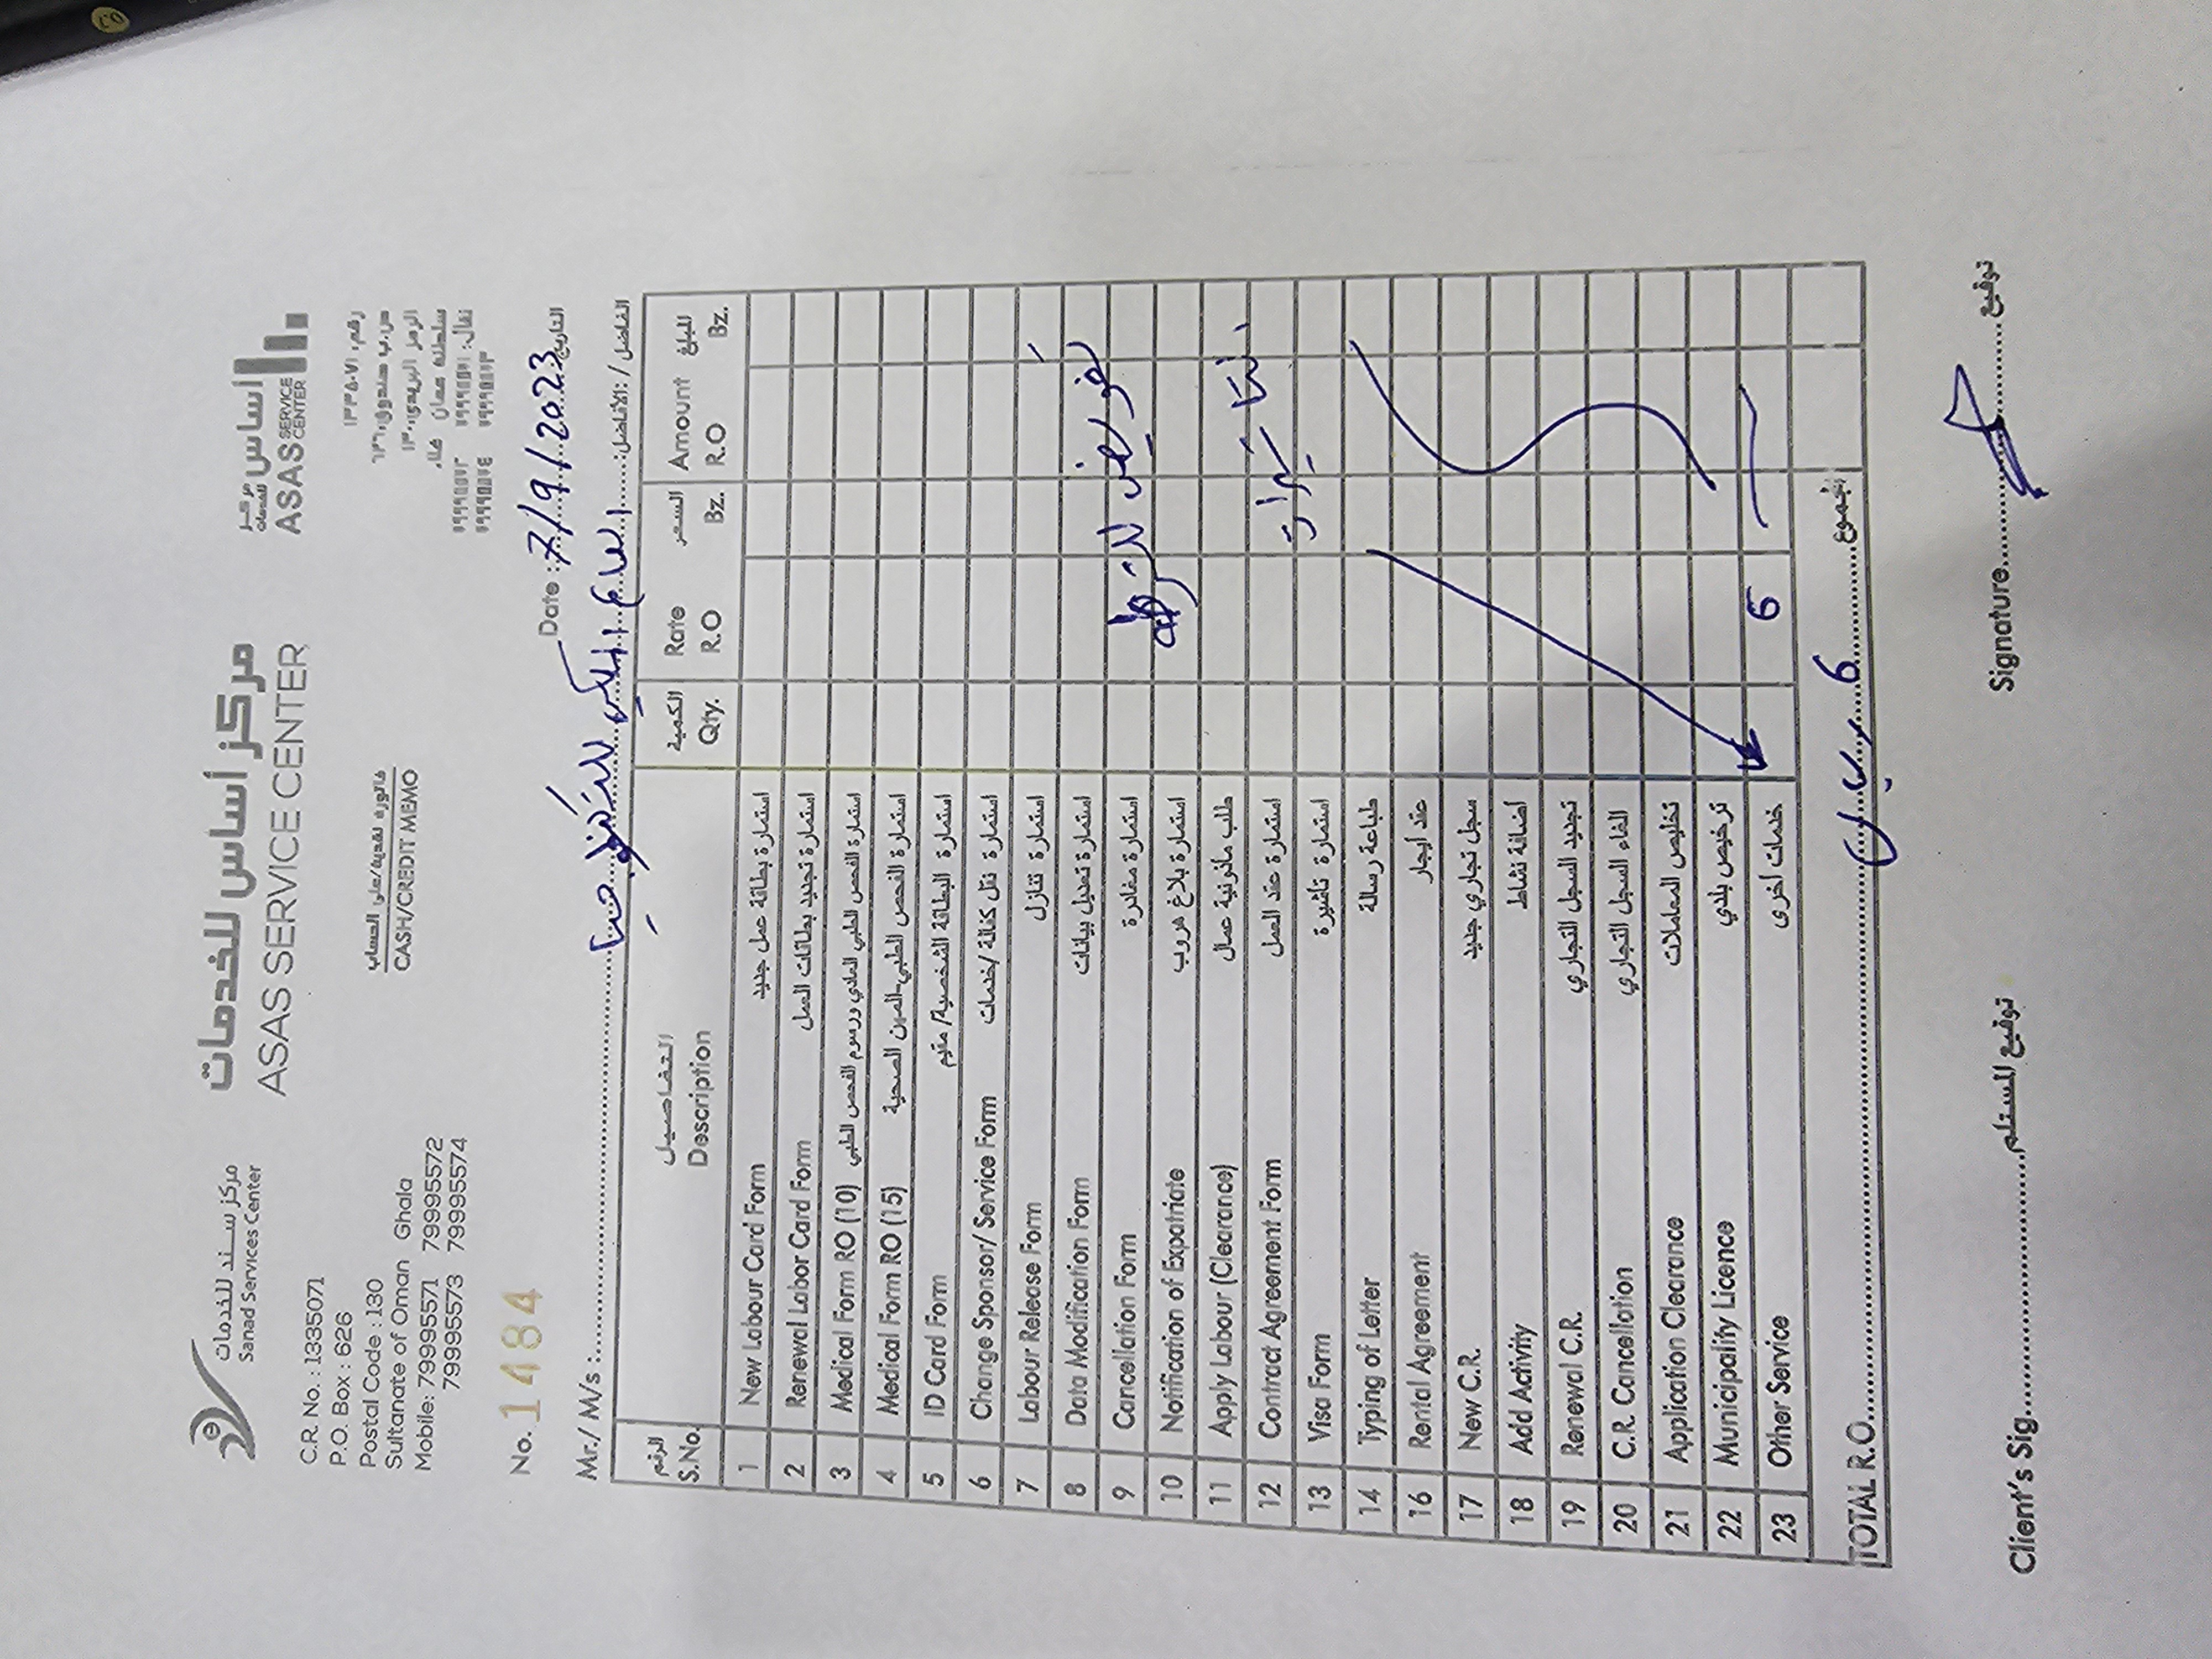 مركز سند للخدمات
Sanad Services Center
مركز أساس للخدمات
ASAS SERVICE CENTER
مركز أساس للخدمات
ASAS SERVICE CENTER
C.R. No. : 1335071
P.O. Box : 626
Postal Code : 130
Sultanate of Oman Ghala
Mobile: 79995571 79995572
79995573 79995574
فاتورة نقدية/على الحساب
CASH/CREDIT MEMO
رقم: ١٣٣٥٠٧١
ص.ب صندوق: ٦٢٦
الرمز البريدي: ١٣٠
سلطنة عمان غلا،
نقال: ٧٩٩٩٥٥٧١ ٧٩٩٩٥٥٧٢
٧٩٩٩٥٥٧٣ ٧٩٩٩٥٥٧٤
No. 1484
Date : 7/9/2023 التاريخ
Mr./ M/s : الفاضل / الأفاضل:
الرقم التفاصيل الكمية السعر المبلغ
S.No. Description Qty. Rate R.O Bz. Amount R.O Bz.
1 New Labour Card Form استمارة بطاقة عمل جديد
2 Renewal Labor Card Form استمارة تجديد بطاقات العمل
3 Medical Form RO (10) استمارة الفحص الطبي العادي ورسوم الفحص الطبي
4 Medical Form RO (15) استمارة الفحص الطبي-المهن الصحية
5 ID Card Form استمارة البطاقة الشخصية/ مقيم
6 Change Sponsor/ Service Form استمارة نقل كفالة /خدمات
7 Labour Release Form استمارة تنازل
8 Data Modification Form استمارة تعديل بيانات
9 Cancellation Form استمارة مغادرة
10 Notification of Expatriate استمارة بلاغ هروب
11 Apply Labour (Clearance) طلب مأذونية عمال
12 Contract Agreement Form استمارة عقد العمل
13 Visa Form استمارة تاشيرة
14 Typing of Letter طباعة رسالة
16 Rental Agreement عقد إيجار
17 New C.R. سجل تجاري جديد
18 Add Activity أضافة نشاط
19 Renewal C.R. تجديد السجل التجاري
20 C.R. Cancellation الغاء السجل التجاري
21 Application Clearance تخليص المعاملات
22 Municipality Licence ترخيص بلدي
23 Other Service خدمات أخرى 6
TOTAL R.O. 6 المجموع
Client's Sig. توقيع المستلم Signature توقيع